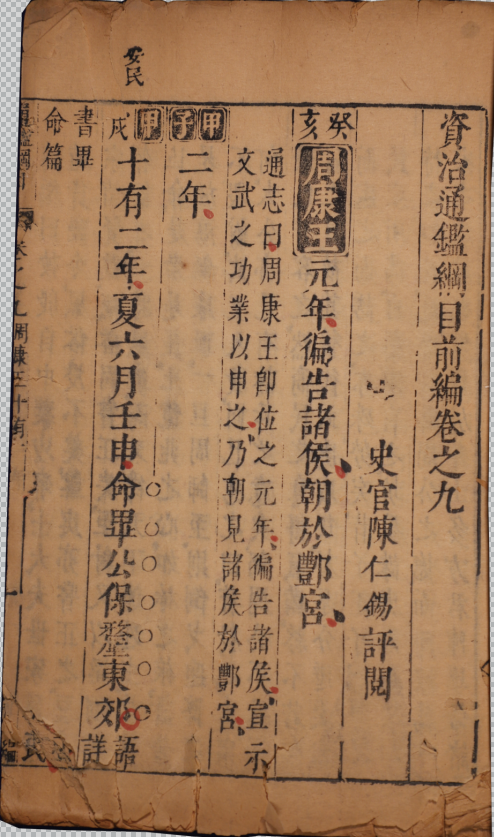 資治通鑑綱目前編卷之九
史官陳仁錫評閱
癸亥
周康王元年徧告諸侯朝於酆宮
通志曰周康王卽位之元年徧告諸侯宣示
文武之功業以申之乃朝見諸侯於酆宮
甲子
二年
甲戌
十有二年夏六月壬申命畢公保釐東郊
語詳
書畢
命篇
安民
卷之九 周康王十有